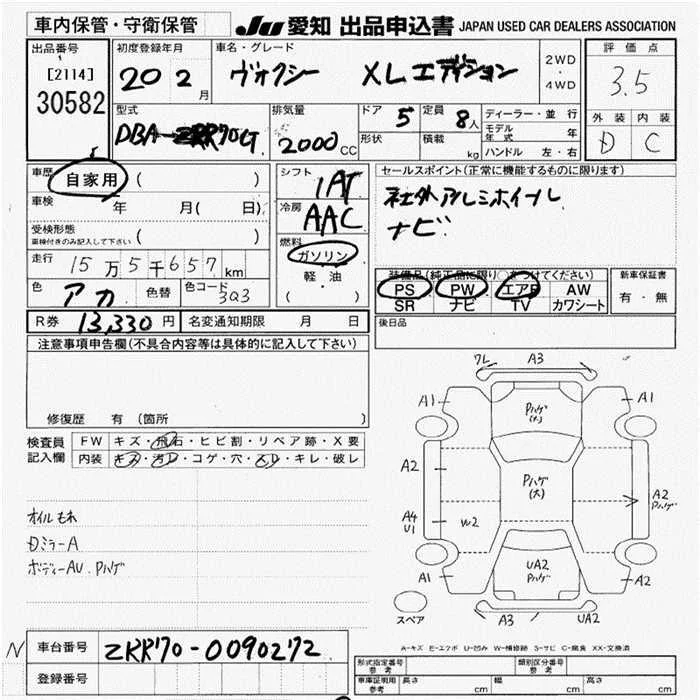 車内保管・守衛保管
JU 愛知 出品申込書 JAPAN USED CAR DEALERS ASSOCIATION
出品番号
[2114]
30582
初度登録年月
20 2月
車名・グレード
ヴォクシー XLエディション
2WD
・
4WD
評価点
3.5
外装 内装
D C
型式
DBA-ZRR70G
排気量
2000CC
ドア 5
定員 8人
形状
積載 kg
ディーラー・並行
モデル年式 年
ハンドル 左・右
車歴
自家用 ( )
車検 年 月( 日)
受検形態
車検付きのみ記入して下さい ( )
走行 15万5千657km
色 アカ 色替 色コード 3Q3
シフト
IAT
冷房
AAC
燃料
ガソリン
軽・油
( )
セールスポイント(正常に機能するものに限ります)
社外アルミホイール
ナビ
装備品(純正品に限り○をつけてください)
PS PW エアB AW
SR ナビ TV カワシート
新車保証書
有・無
R券 13,330円 名変通知期限 月 日
後日品
注意事項申告欄(不具合内容等は具体的に記入して下さい)
修復歴 有 (箇所 )
検査員
記入欄
FW キズ・飛石・ヒビ割・リペア跡・X要
内装 キズ・汚れ・コゲ・穴・スレ・キレ・破レ
オイルもれ
Dミラー A
ボディー AU. Pハゲ
ワレ A3
A1 Pハゲ(大) A1
A2 Pハゲ(大) A2 Pハゲ
A4 U1 W2
A1 UA2 Pハゲ A2
スペア
A3 UA2
A-キズ E-エクボ U-凹み W-補修跡 S-サビ C-腐食 XX-交換済
N 車台番号 ZRR70-0090272
登録番号
形式指定番号 参考 類別区分番号 参考
車庫証明用 参考 長さ cm 幅 cm 高さ cm